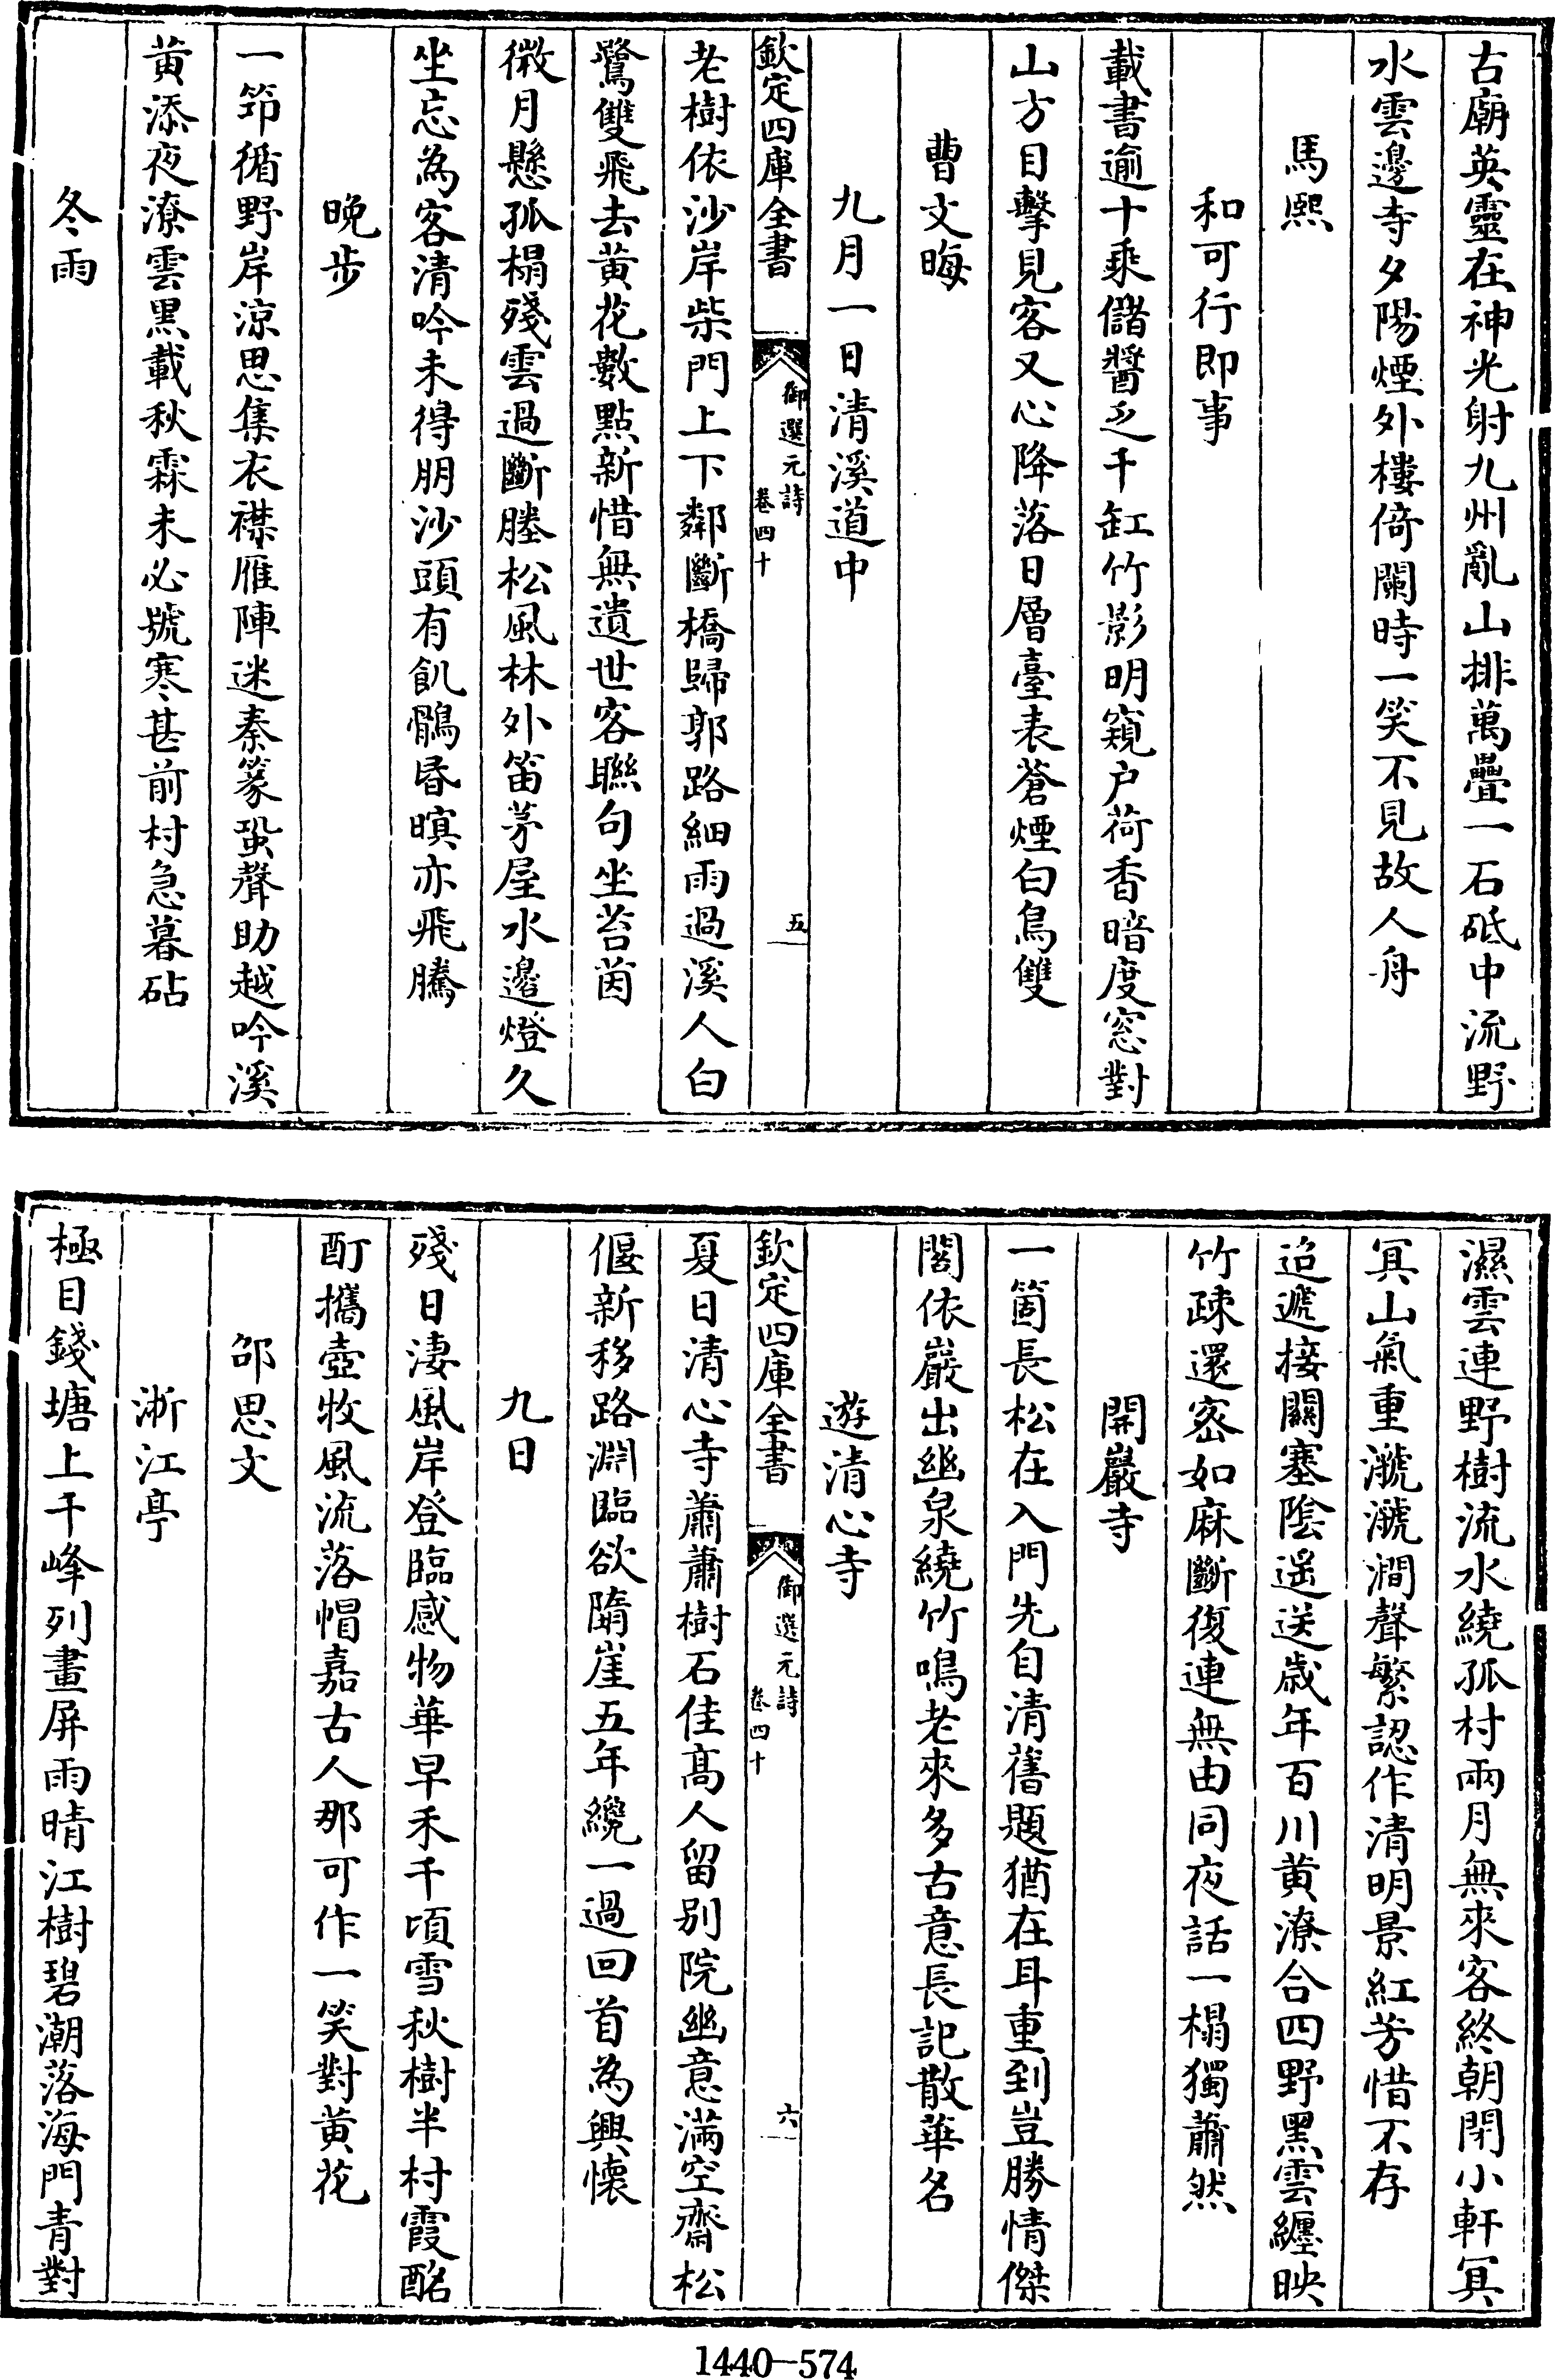 古廟英靈在神光射九州亂山排萬疊一石砥中流野
水雲邊寺夕陽煙外樓倚闌時一笑不見故人舟
馬熙
和可行即事
載書逾十乘儲醬乏千缸竹影明窺户荷香暗度窓對
山方目擊見客又心降落日層臺表蒼煙白鳥雙
曹文晦
九月一日清溪道中
欽定四庫全書
御選元詩
卷四十
五
老樹依沙岸柴門上下鄰斷橋歸郭路細雨過溪人白
鷺雙飛去黄花數點新惜無遺世客聯句坐苔茵
微月懸孤榻殘雲過斷塍松風林外笛茅屋水邊燈久
坐忘為客清吟未得朋沙頭有飢鶻昏暝亦飛騰
晚步
一笻循野岸涼思集衣襟雁陣迷秦篆蛩聲助越吟溪
黄添夜潦雲黒載秋霖未必號寒甚前村急暮砧
冬雨
濕雲連野樹流水繞孤村兩月無來客終朝閉小軒冥
冥山氣重㶁㶁澗聲繁認作清明景紅芳惜不存
迢遞接關塞陰遥送歲年百川黄潦合四野黒雲纒映
竹疎還宻如麻斷復連無由同夜話一榻獨蕭然
開巖寺
一箇長松在入門先自清舊題猶在耳重到豈勝情傑
閣依巖出幽泉繞竹鳴老來多古意長記散華名
遊清心寺
欽定四庫全書
御選元詩
卷四十
六
夏日清心寺蕭蕭樹石佳髙人留别院幽意滿空齋松
偃新移路淵臨欲隤崖五年纔一過回首為興懷
九日
殘日淒風岸登臨感物華早禾千頃雪秋樹半村霞酩
酊攜壺牧風流落帽嘉古人那可作一笑對黄花
邵思文
浙江亭
極目錢塘上千峰列畫屏雨晴江樹碧潮落海門青對
1440—574